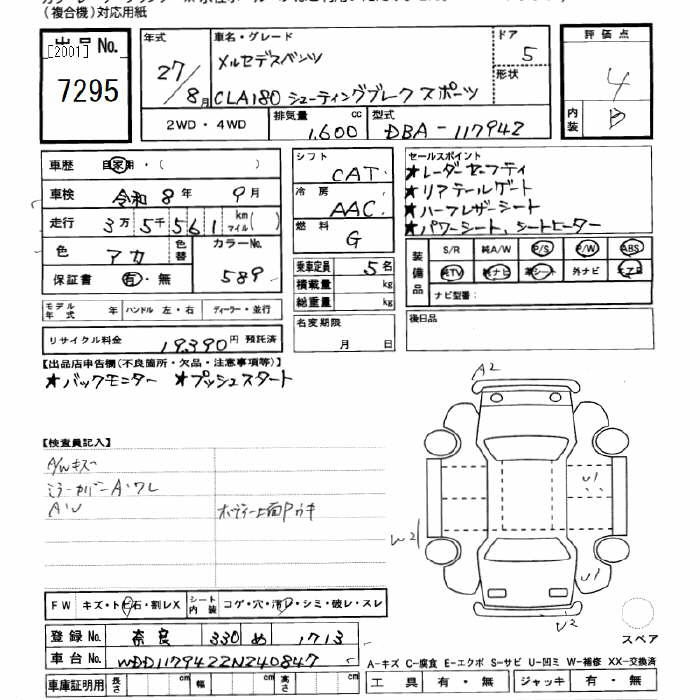 (複合機)対応用紙
出品No.
[2001]
7295
年式
27/8月
車名・グレード
メルセデスベンツ
CLA180 シューティングブレーク スポーツ
ドア
5
形状
評価点
4
内装
B
2WD・4WD
排気量
1,600 cc
型式
DBA-117942
車歴 自家用・( )
車検 令和 8年 9月
走行 3万5千561 km マイル( )
色 アカ
色替
カラーNo.
589
保証書 有・無
モデル年式 年 ハンドル 左・右 ディーラー・並行
リサイクル料金 19,390円 預託済
シフト CAT
冷房 AAC
燃料 G
乗車定員 5名
積載量 kg
総重量 kg
名変期限
月 日
セールスポイント
★レーダーセーフティ
★リアテールゲート
★ハーフレザーシート
★パワーシート、シートヒーター
装備品
S/R 純A/W P/S P/W ABS
純TV 純ナビ 革シート 外ナビ エアB
ナビ型番:
後日品
【出品店申告欄(不良箇所・欠品・注意事項等)】
★バックモニター ★プッシュスタート
【検査員記入】
A/Wキズ
ミラーカバーA・ワレ
A・U
ボディ上面Pウキ
A2
U1
W2
U1
U2
スペア
FW キズ・トビ石・割レX
シート内装 コゲ・穴・汚レ・シミ・破レ・スレ
登録No. 奈良 330 め 1713
車台No. WDD1179422N240847
車庫証明用 長さ cm 幅 cm 高さ cm
A-キズ C-腐食 E-エクボ S-サビ U-凹ミ W-補修 XX-交換済
工具 有・無 ジャッキ 有・無